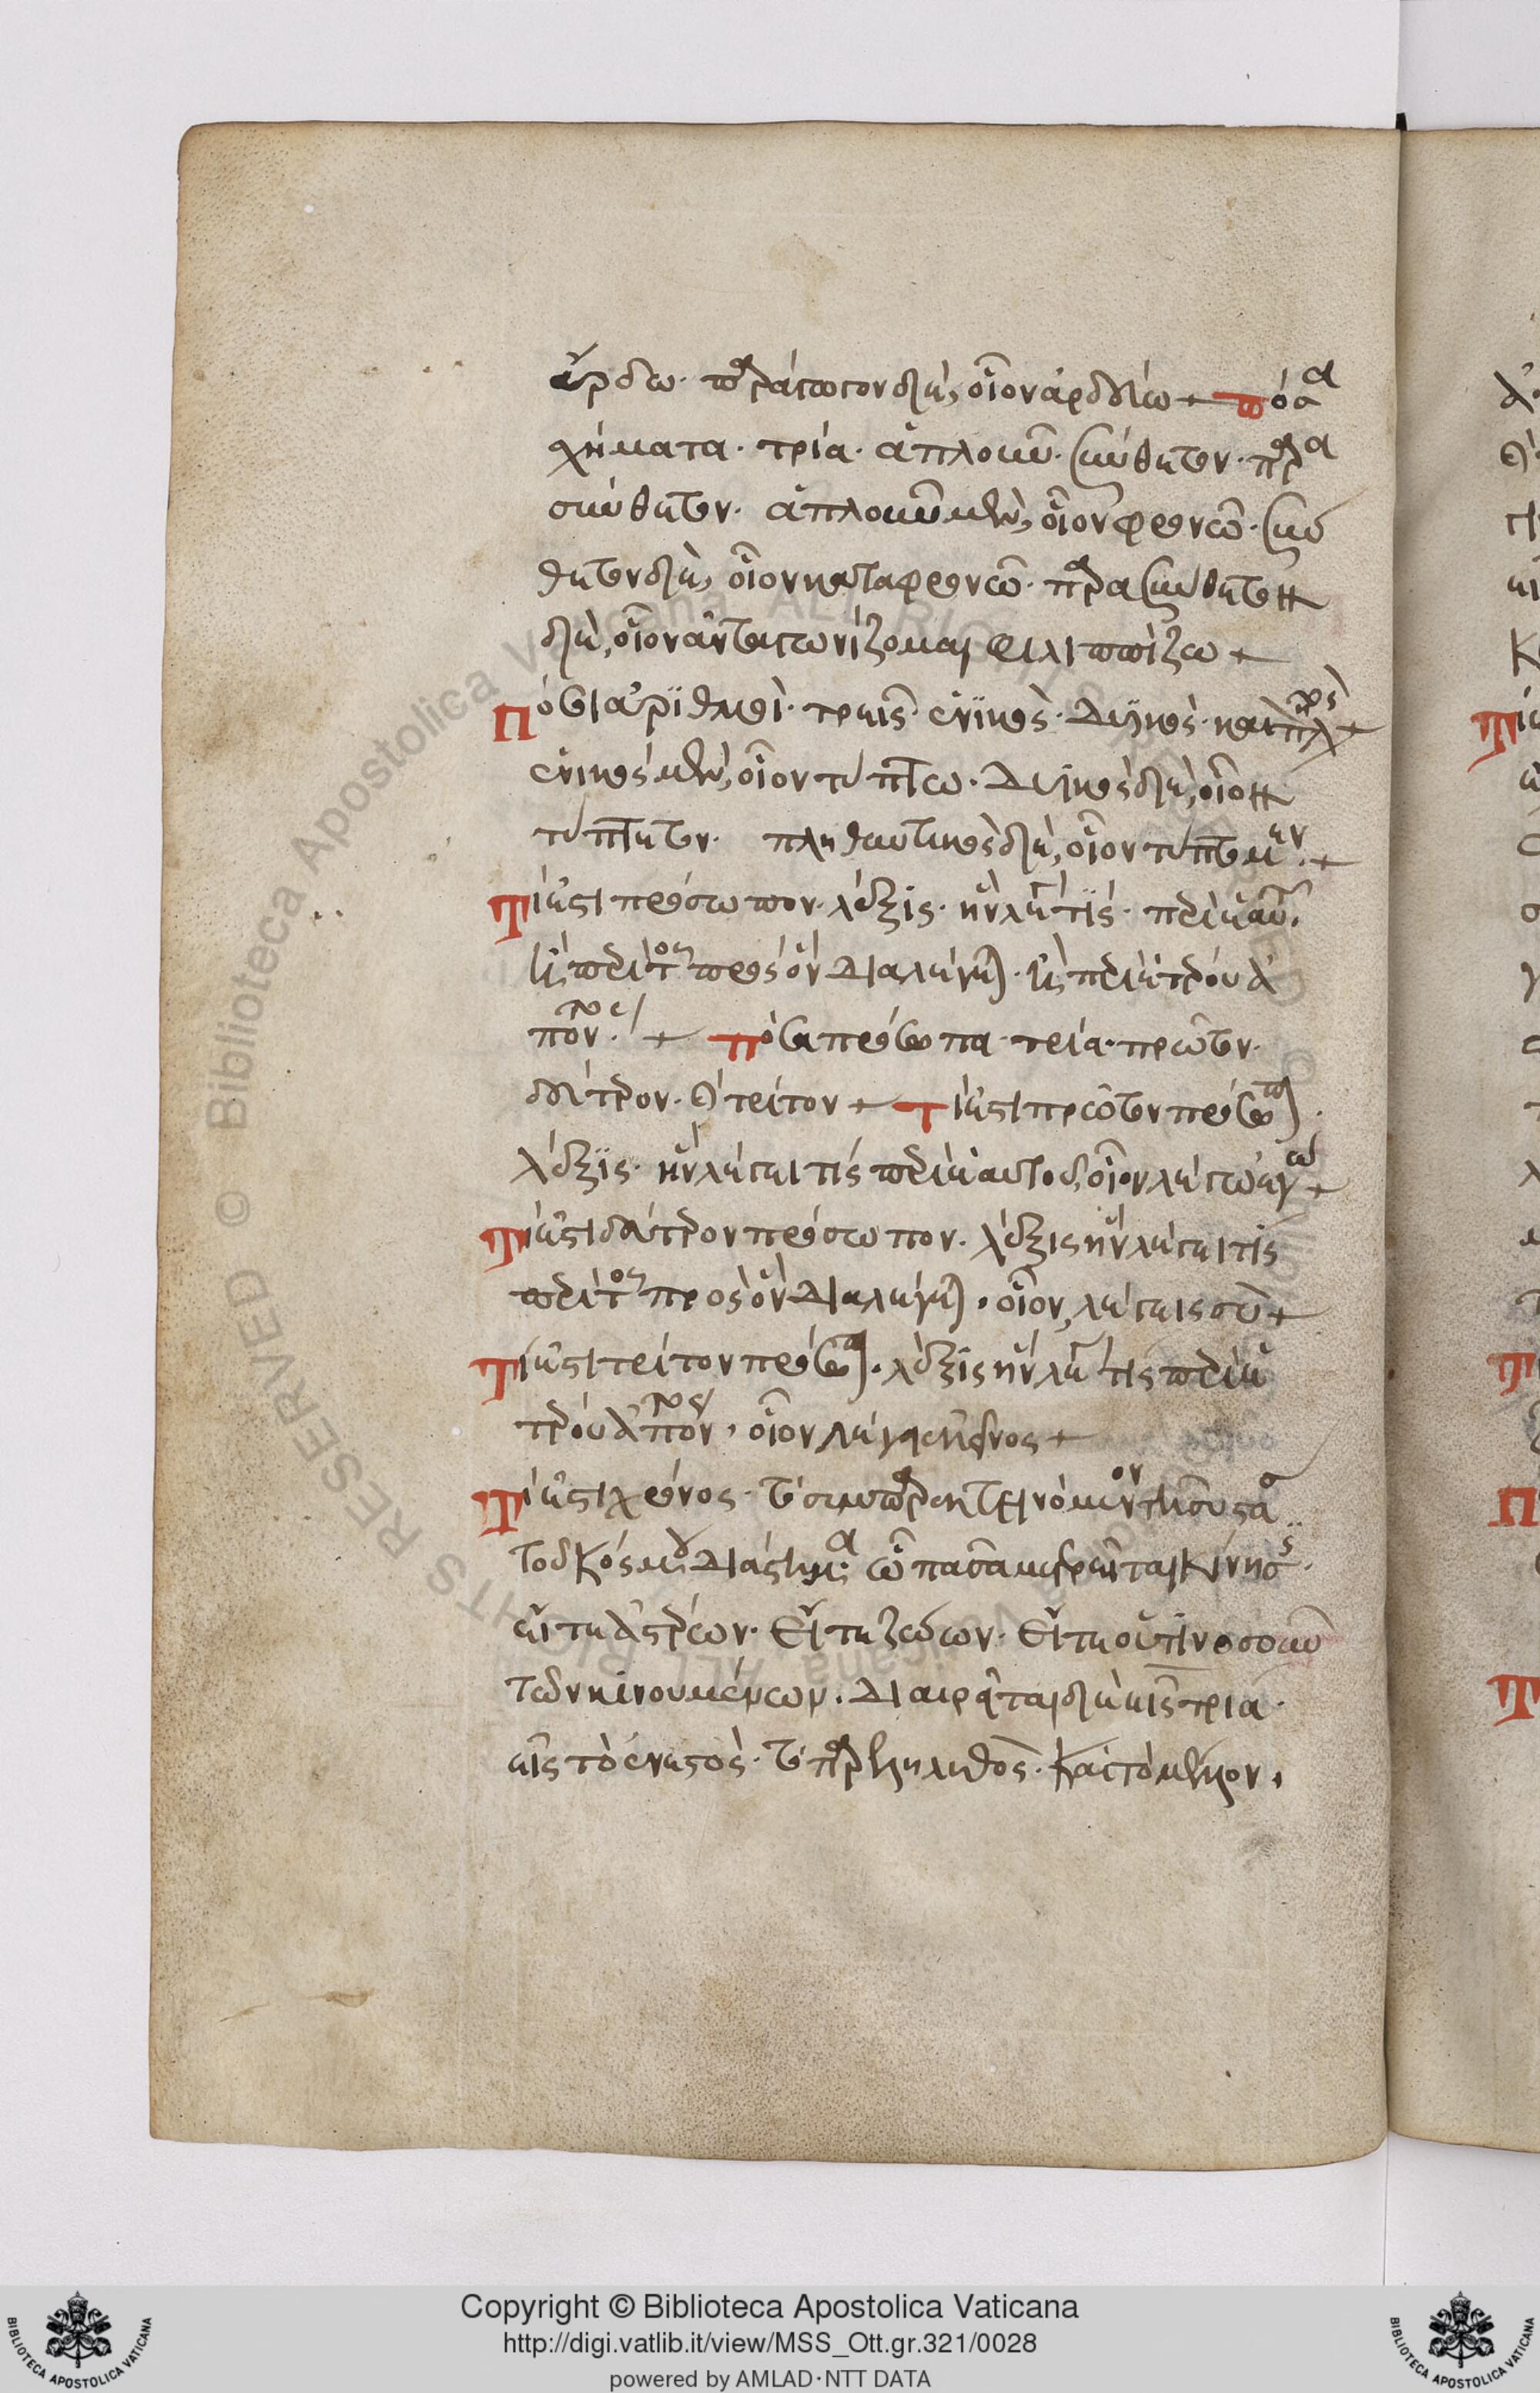 ἄρδω· παράγωγον δὲ, οἷον ἀρδεύω + πόσα
σχήματα· τρία· ἁπλοῦν· σύνθετον· παρα
σύνθετον· ἁπλοῦν μὲν, οἷον φρονῶ· σύν
θετον δὲ, οἷον καταφρονῶ· παρασύνθετον
δὲ, οἷον ἀνταγωνίζομαι φιλιππίζω +
Πόσοι ἀριθμοὶ· τρεῖς· ἑνικὸς· δυϊκὸς· καὶ πληθυντικός +
ἑνικὸς μὲν, οἷον τύπτω· δυϊκὸς δὲ, οἷον
τύπτετον· πληθυντικὸς δὲ, οἷον τύπτομεν· +
Τί ἐστι πρόσωπον· λέξις· ἣν λέγει τίς· περὶ ἑαυτοῦ·
ἢ περὶ τοῦ πρὸς ὃν διαλέγεται· ἢ περὶ ἑτέρου ἀ
πόντος· + πόσα πρόσωπα· τρία· πρῶτον·
δεύτερον· καὶ τρίτον + τί ἐστι πρῶτον πρόσωπον·
λέξις· ἣν λέγει τίς περὶ ἑαυτοῦ, οἷον λέγω ἐγώ +
Τί ἐστι δεύτερον πρόσωπον· λέξις ἣν λέγει τίς
περὶ τοῦ πρὸς ὃν διαλέγεται· οἷον, λέγεις σὺ +
Τί ἐστι τρίτον πρόσωπον· λέξις ἣν λέγει τίς περὶ ἑ
τέρου ἀπόντος· οἷον λέγει ἐκεῖνος +
Τί ἐστι χρόνος· τὸ συμπαρεκτεινόμενον τῆ συστάσει
τοῦ κόσμου διάστημα· ὧ πᾶσα μετρεῖται κίνησις·
εἴτε ἀστέρων· εἴτε ζώων· εἴτε οὑτινοσοῦν
τῶν κινουμένων· διαιρεῖται δὲ εἰς τρία·
εἰς τὸ ἐνεστὸς· τὸ παρεληλυθὸς· καὶ τὸ μέλλον·
Copyright © Biblioteca Apostolica Vaticana
http://digi.vatlib.it/view/MSS_Ott.gr.321/0028
powered by AMLAD·NTT DATA